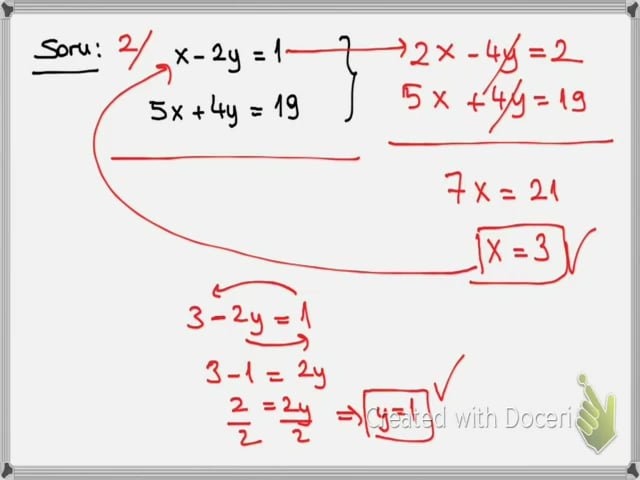 Soru: 2/ x - 2y = 1
5x + 4y = 19
2x - 4y = 2
5x + 4y = 19
7x = 21
x = 3 ✓
3 - 2y = 1
3 - 1 = 2y
2/2 = 2y/2 ⇒ y = 1 ✓
Created with Doceri